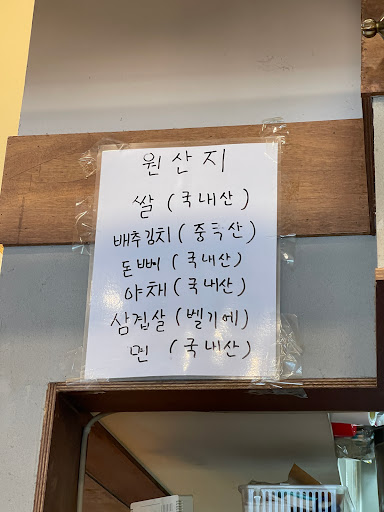 원산지
쌀 (국내산)
배추김치 (중국산)
돈뼈 (국내산)
야채 (국내산)
삼겹살 (벨기에)
면 (국내산)